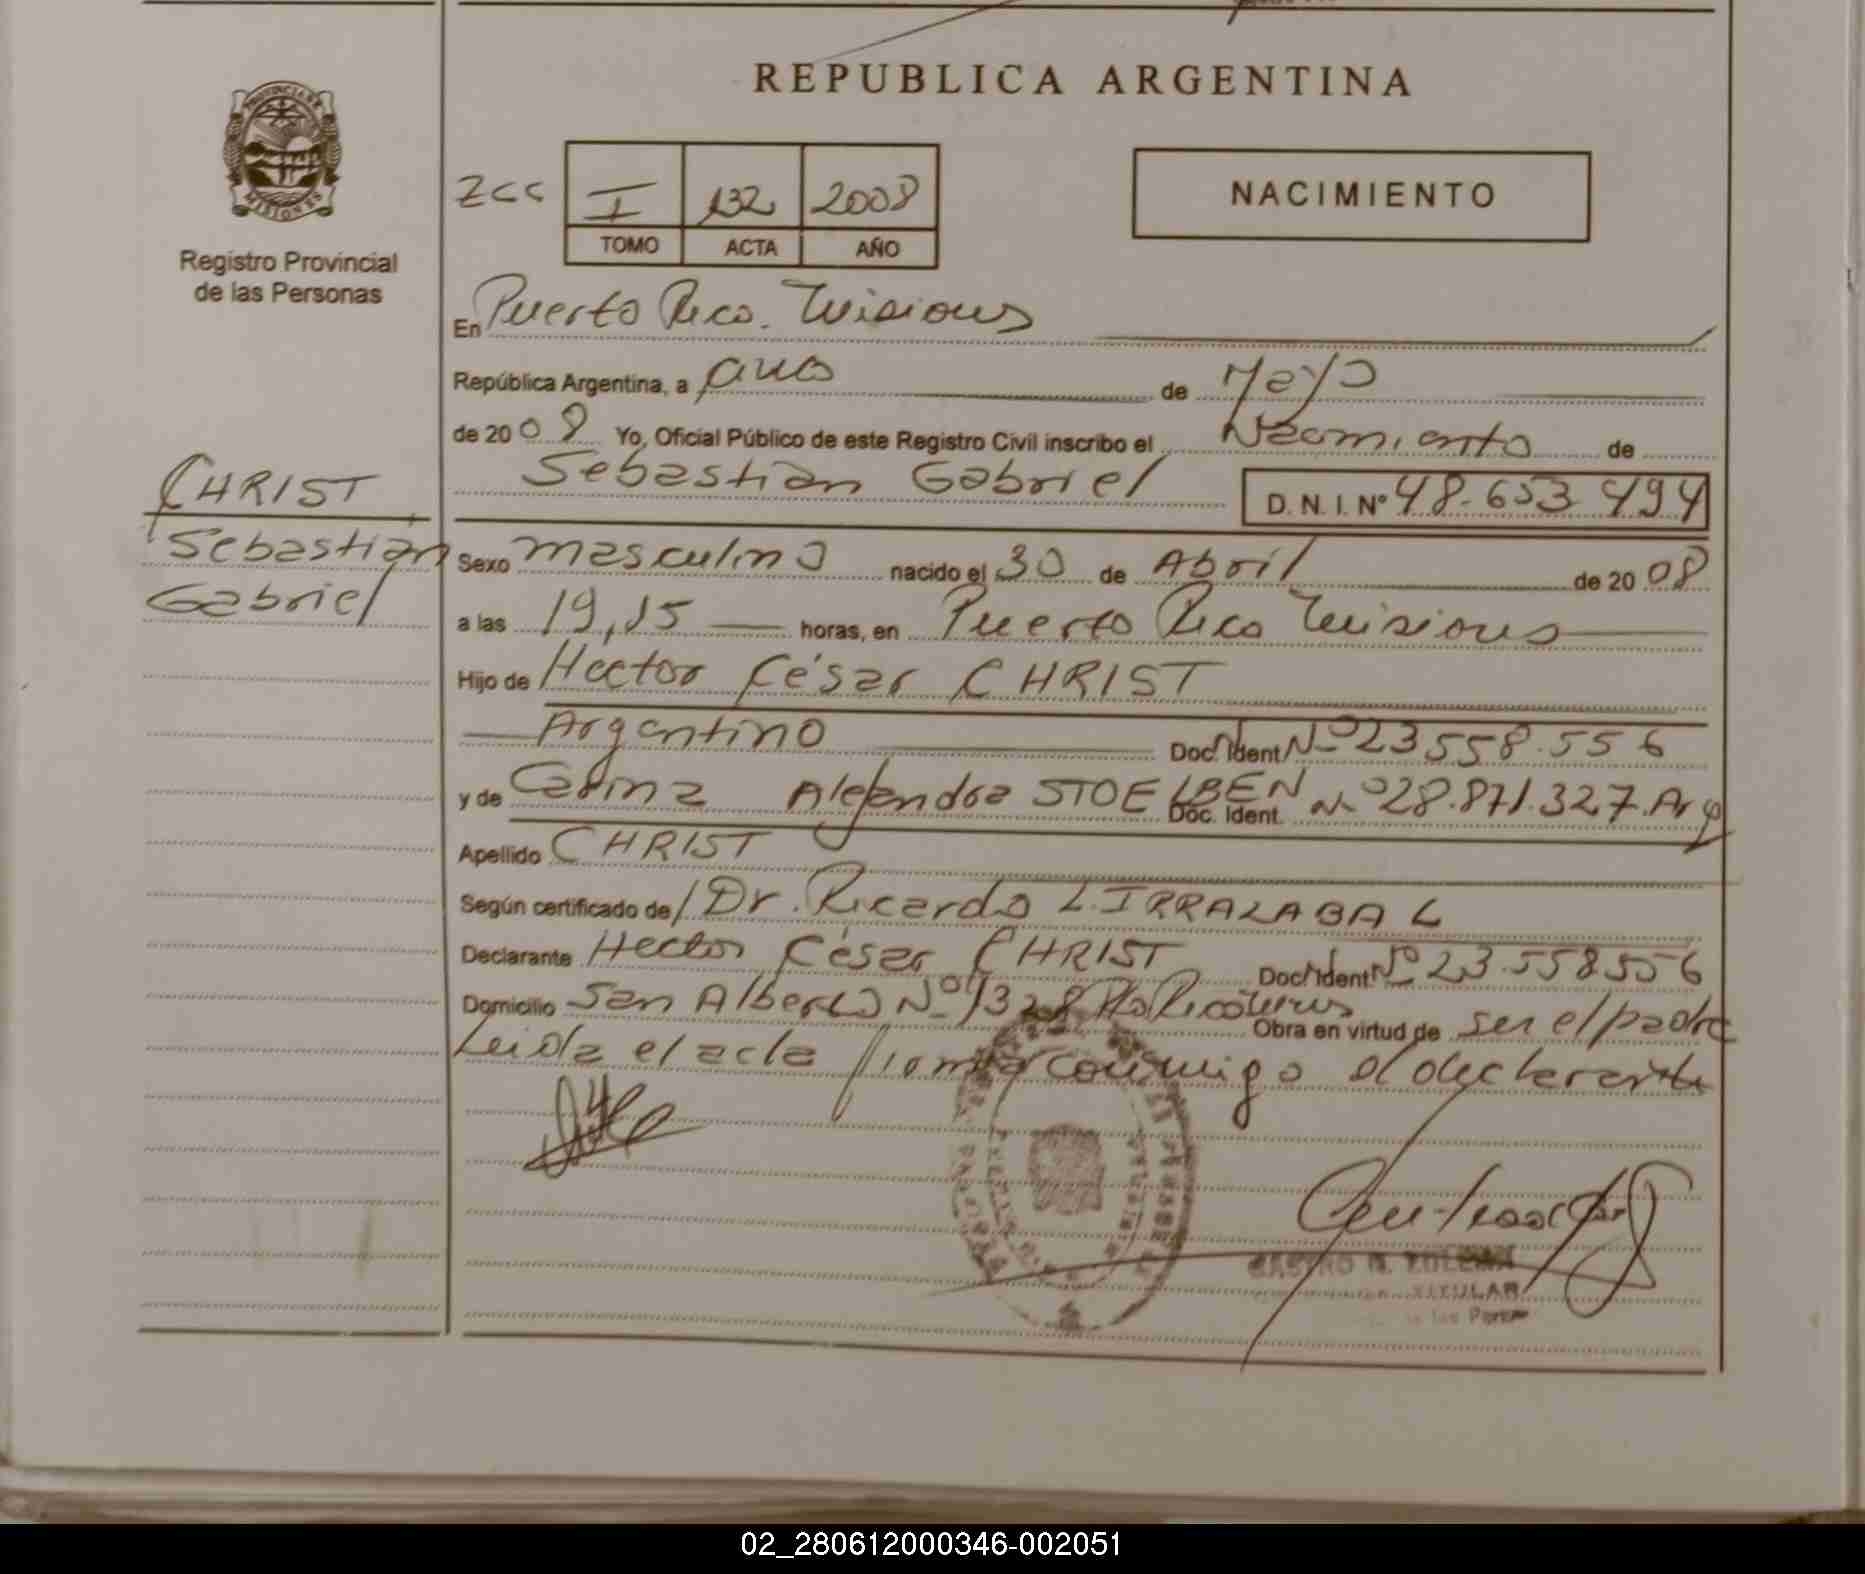 REPUBLICA ARGENTINA
PROVINCIA DE
MISIONES
Registro Provincial
de las Personas
ZCC I 132 2008
TOMO ACTA AÑO
NACIMIENTO
En Puerto Rico. Misiones
República Argentina, a dos de Mayo
de 2008 Yo, Oficial Público de este Registro Civil inscribo el Nacimiento de
Sebastian Gabriel D. N. I. Nº 48.653.494
CHRIST
Sebastian
Gabriel
Sexo masculino nacido el 30 de Abril de 2008
a las 19,15 horas, en Puerto Rico Misiones
Hijo de Hector César CHRIST
Argentino Doc. Ident Nº 23.558.556
y de Carina Alejandra STOELBEN Doc. Ident. Nº 28.871.327. Arg
Apellido CHRIST
Según certificado de Dr. Ricardo L. IRRALABAL
Declarante Hector César CHRIST Doc. Ident Nº 23.558.556
Domicilio San Alberto Nº 1328 Pto Rico Mnes Obra en virtud de ser el padre
Leida el acta firma conmigo el declarante
CASTRO
TITULAR
02_280612000346-002051